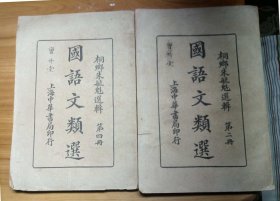 桐鄉朱毓魁選輯 第二冊
國語文類選
上海中華書局印行
桐鄉朱毓魁選輯 第四冊
國語文類選
上海中華書局印行